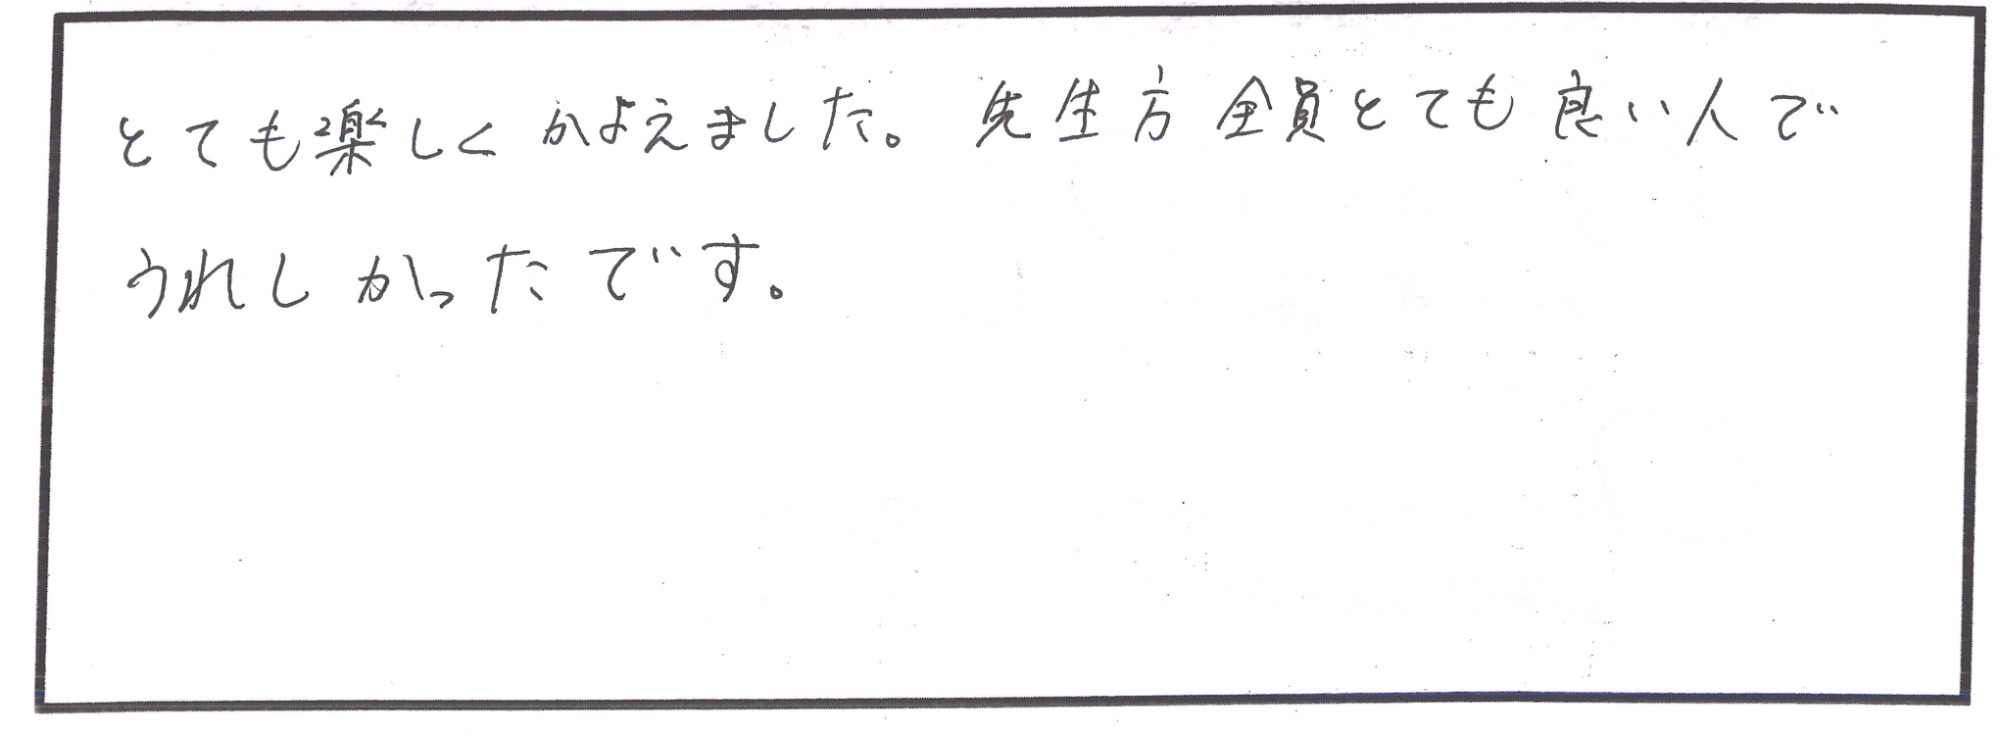 とても楽しくかよえました。先生方全員とても良い人で
うれしかったです。